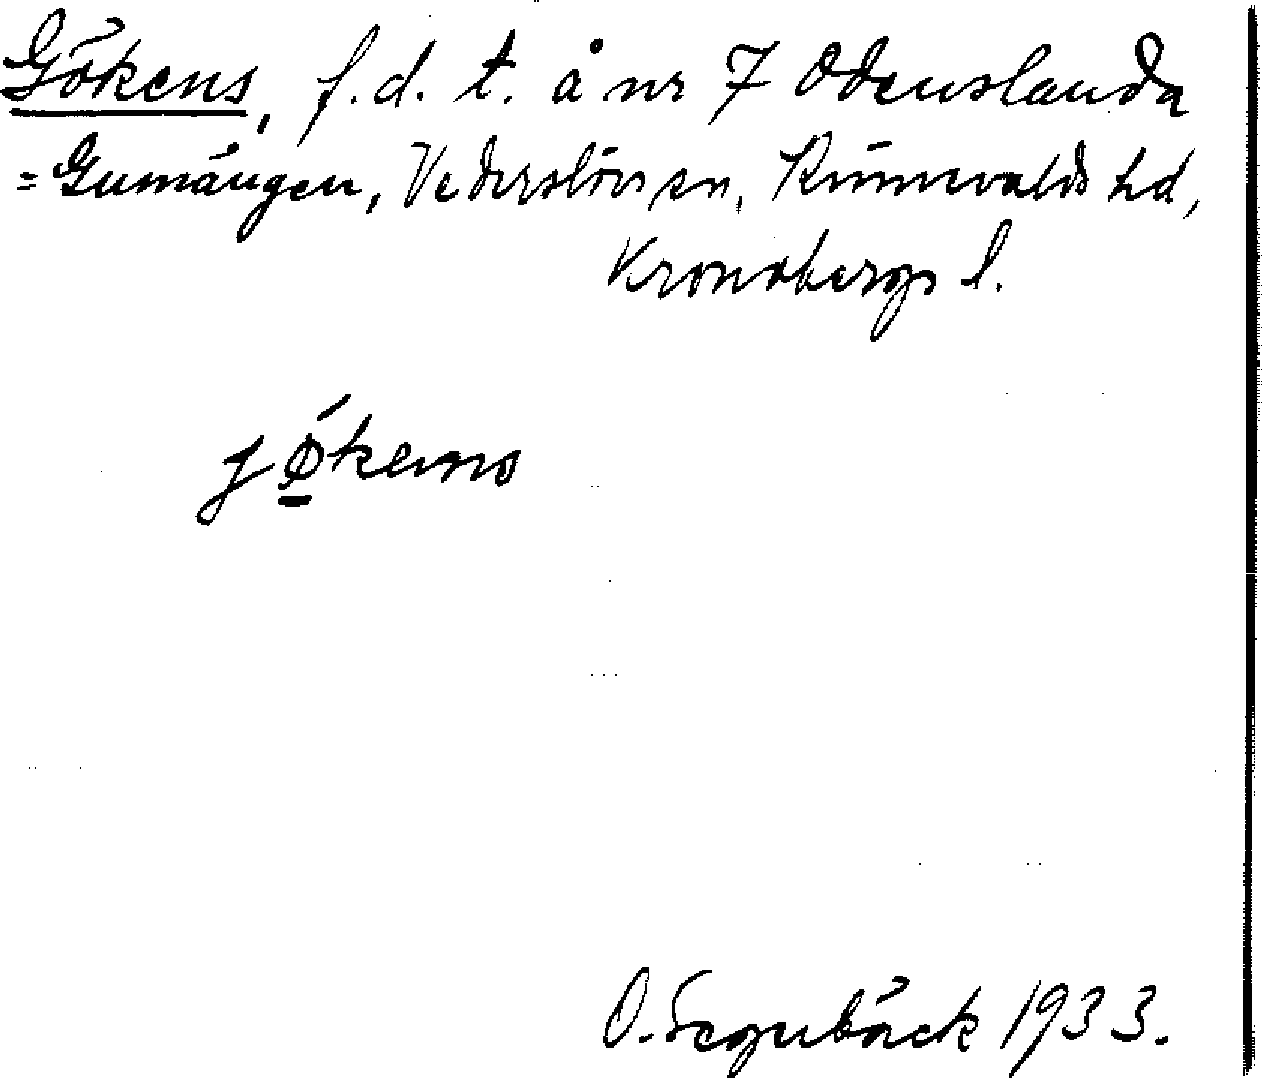 Gökens, f.d. t. å nr 7 Odenslanda
=Gumängen, Vederslövs sn, Kinnevalds hd,
Kronobergs l.
jǿ̱kens
O. Segnbäck 1933.